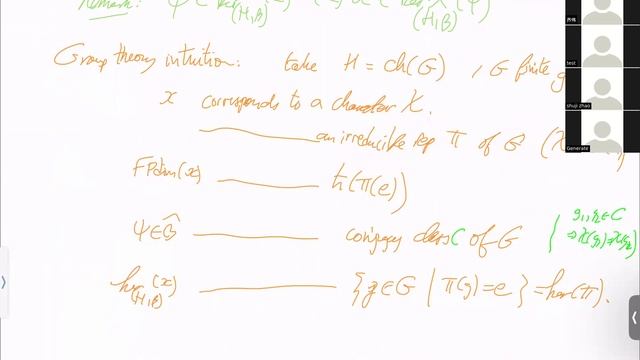 Remark: ψ ∈
(H,B)
(H,B)
Group theory intuition: take H = ch(G) , G finite g
x corresponds to a character χ.
an irreducible rep π of G
FPdim(x) tr(π(e))
ψ ∈ B̂ conjugacy class C of G
g₁, g₂ ∈ C
⇒ χ(g₁) = χ(g₂)
ker (x) { g ∈ G | π(g) = e } = ker(π).
(H,B)
test
shuji zhao
Generate